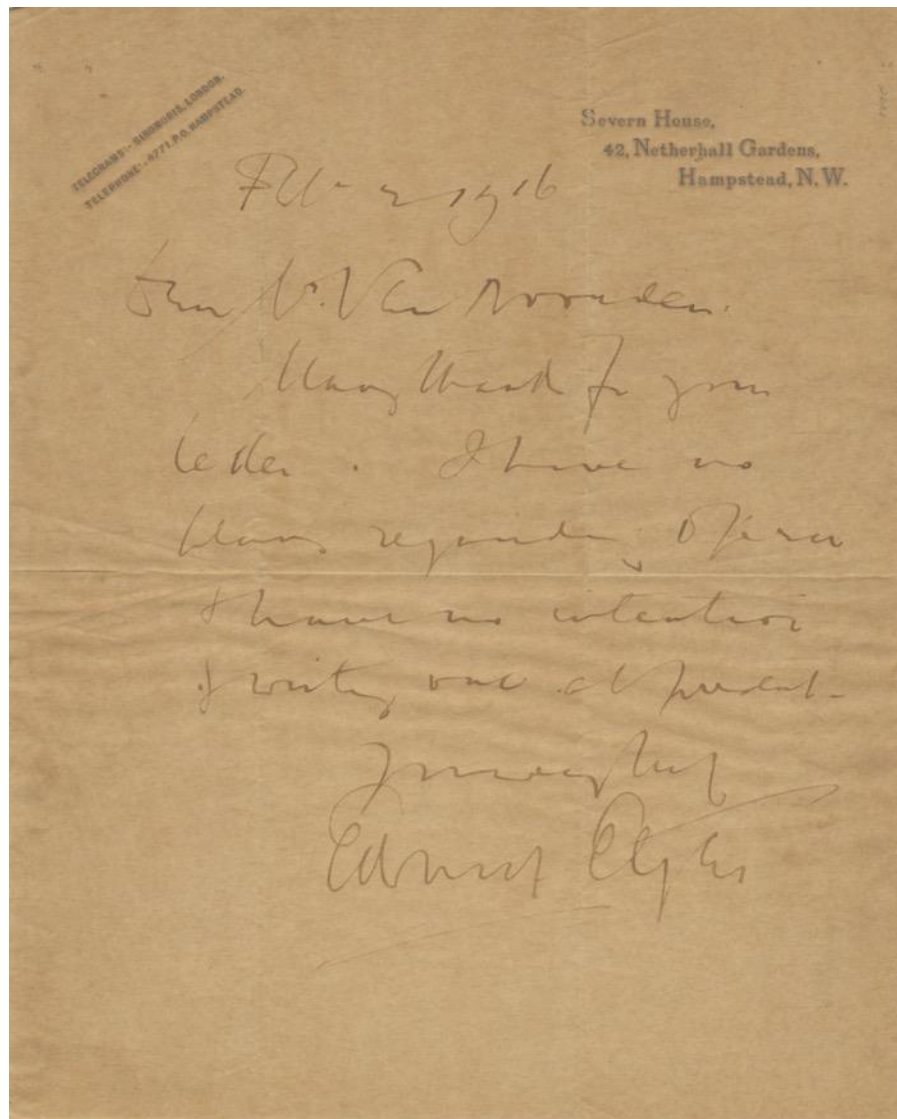 TELEGRAMS:- SIROMORIS, LONDON.
TELEPHONE:- 4771 P.O. HAMPSTEAD.
Severn House,
42, Netherhall Gardens,
Hampstead, N.W.
Feb 2 1916
Dear Mr. Van Noorden.
Many thanks for your
letter. I have no
plans regarding opera
I have no intention
of writing one at present.
Yours very truly
Edward Elgar